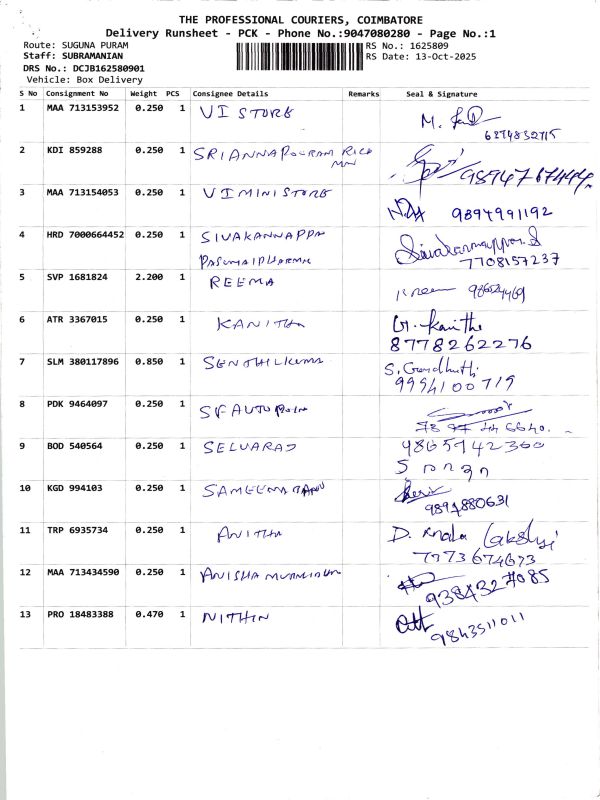 THE PROFESSIONAL COURIERS, COIMBATORE
Delivery Runsheet - PCK - Phone No.:9047080280 - Page No.:1
Route: SUGUNA PURAM
RS No.: 1625809
Staff: SUBRAMANIAN
RS Date: 13-Oct-2025
DRS No.: DCJB162580901
Vehicle: Box Delivery
S No Consignment No Weight PCS Consignee Details Remarks Seal & Signature
1 MAA 713153952 0.250 1 VI STORE M.
6274832715
2 KDI 859288 0.250 1 SRI ANNAPOORANI RICE
MN
3 MAA 713154053 0.250 1 VI MINI STORE 9894991192
4 HRD 7000664452 0.250 1 SIVAKANNAPPA Sivakannappan.S
7708157237
5 SVP 1681824 2.200 1 REEMA
6 ATR 3367015 0.250 1 KANITHA G. Kanitha
8778262276
7 SLM 380117896 0.850 1 SENTHILKUMA S. Gandhathi
9994100719
8 PDK 9464097 0.250 1 SF AUTO
9 BOD 540564 0.250 1 SELVARAJ 9865942360
10 KGD 994103 0.250 1 SAMEEMA BANU
9894880631
11 TRP 6935734 0.250 1 ANITHA D. Lakshmi
7373674673
12 MAA 713434590 0.250 1 ANISHA
9384327085
13 PRO 18483388 0.470 1 NITHIN
9843511011